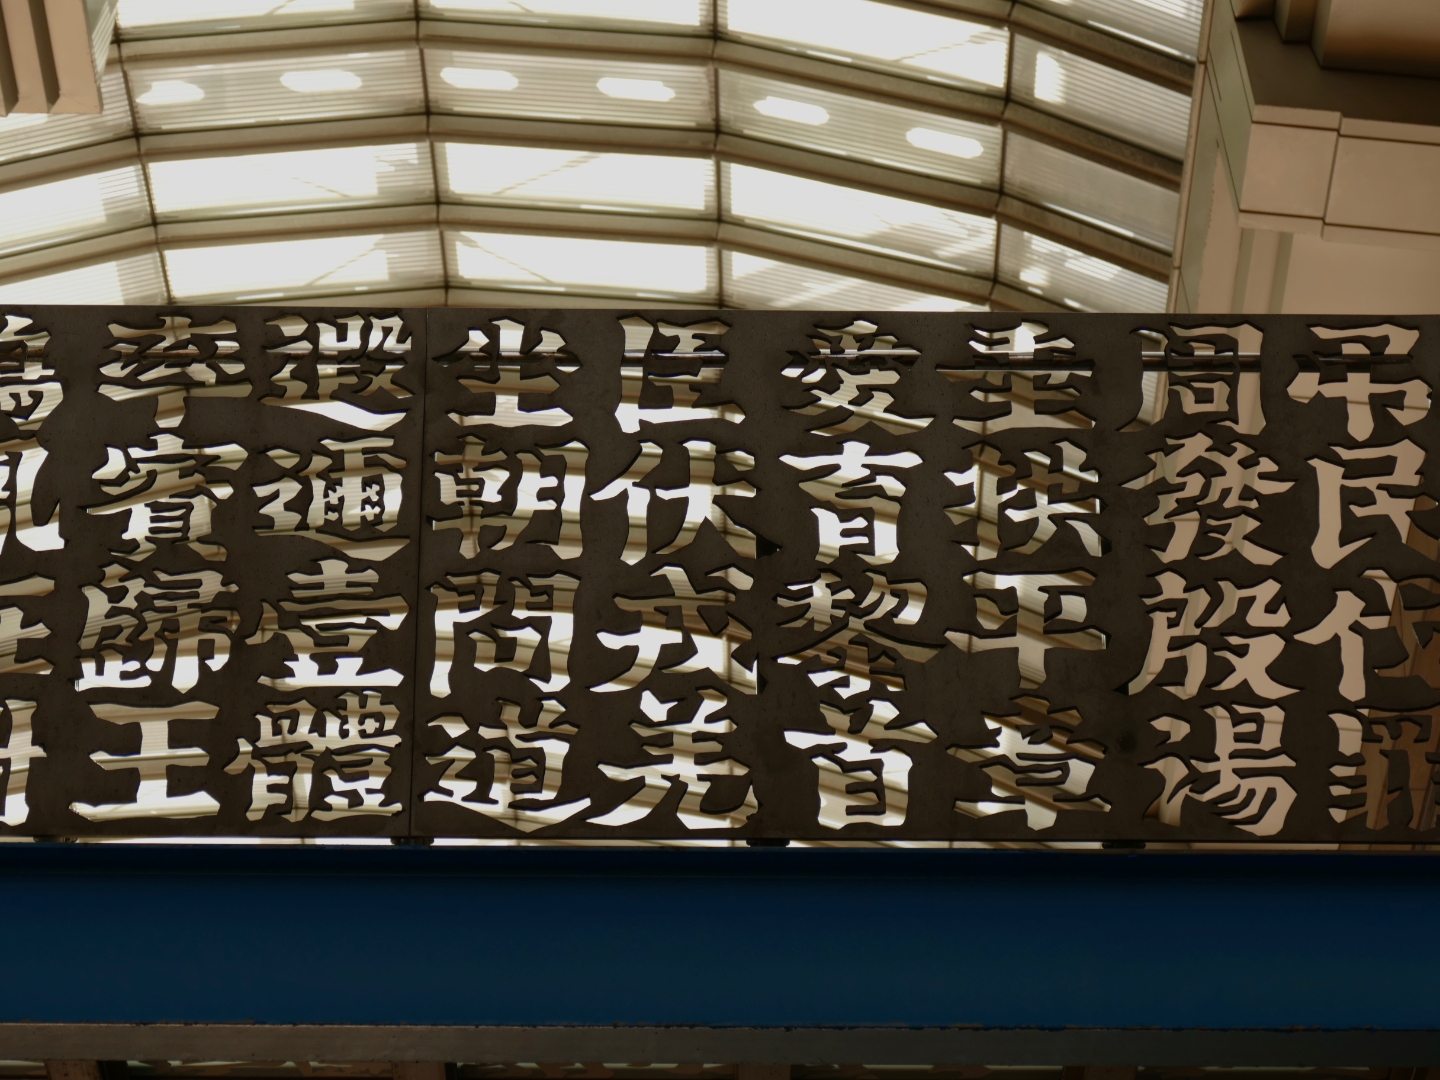 吊民伐罪
周發殷湯
垂拱平章
愛育黎首
臣伏戎羌
坐朝問道
遐邇壹體
率賓歸王